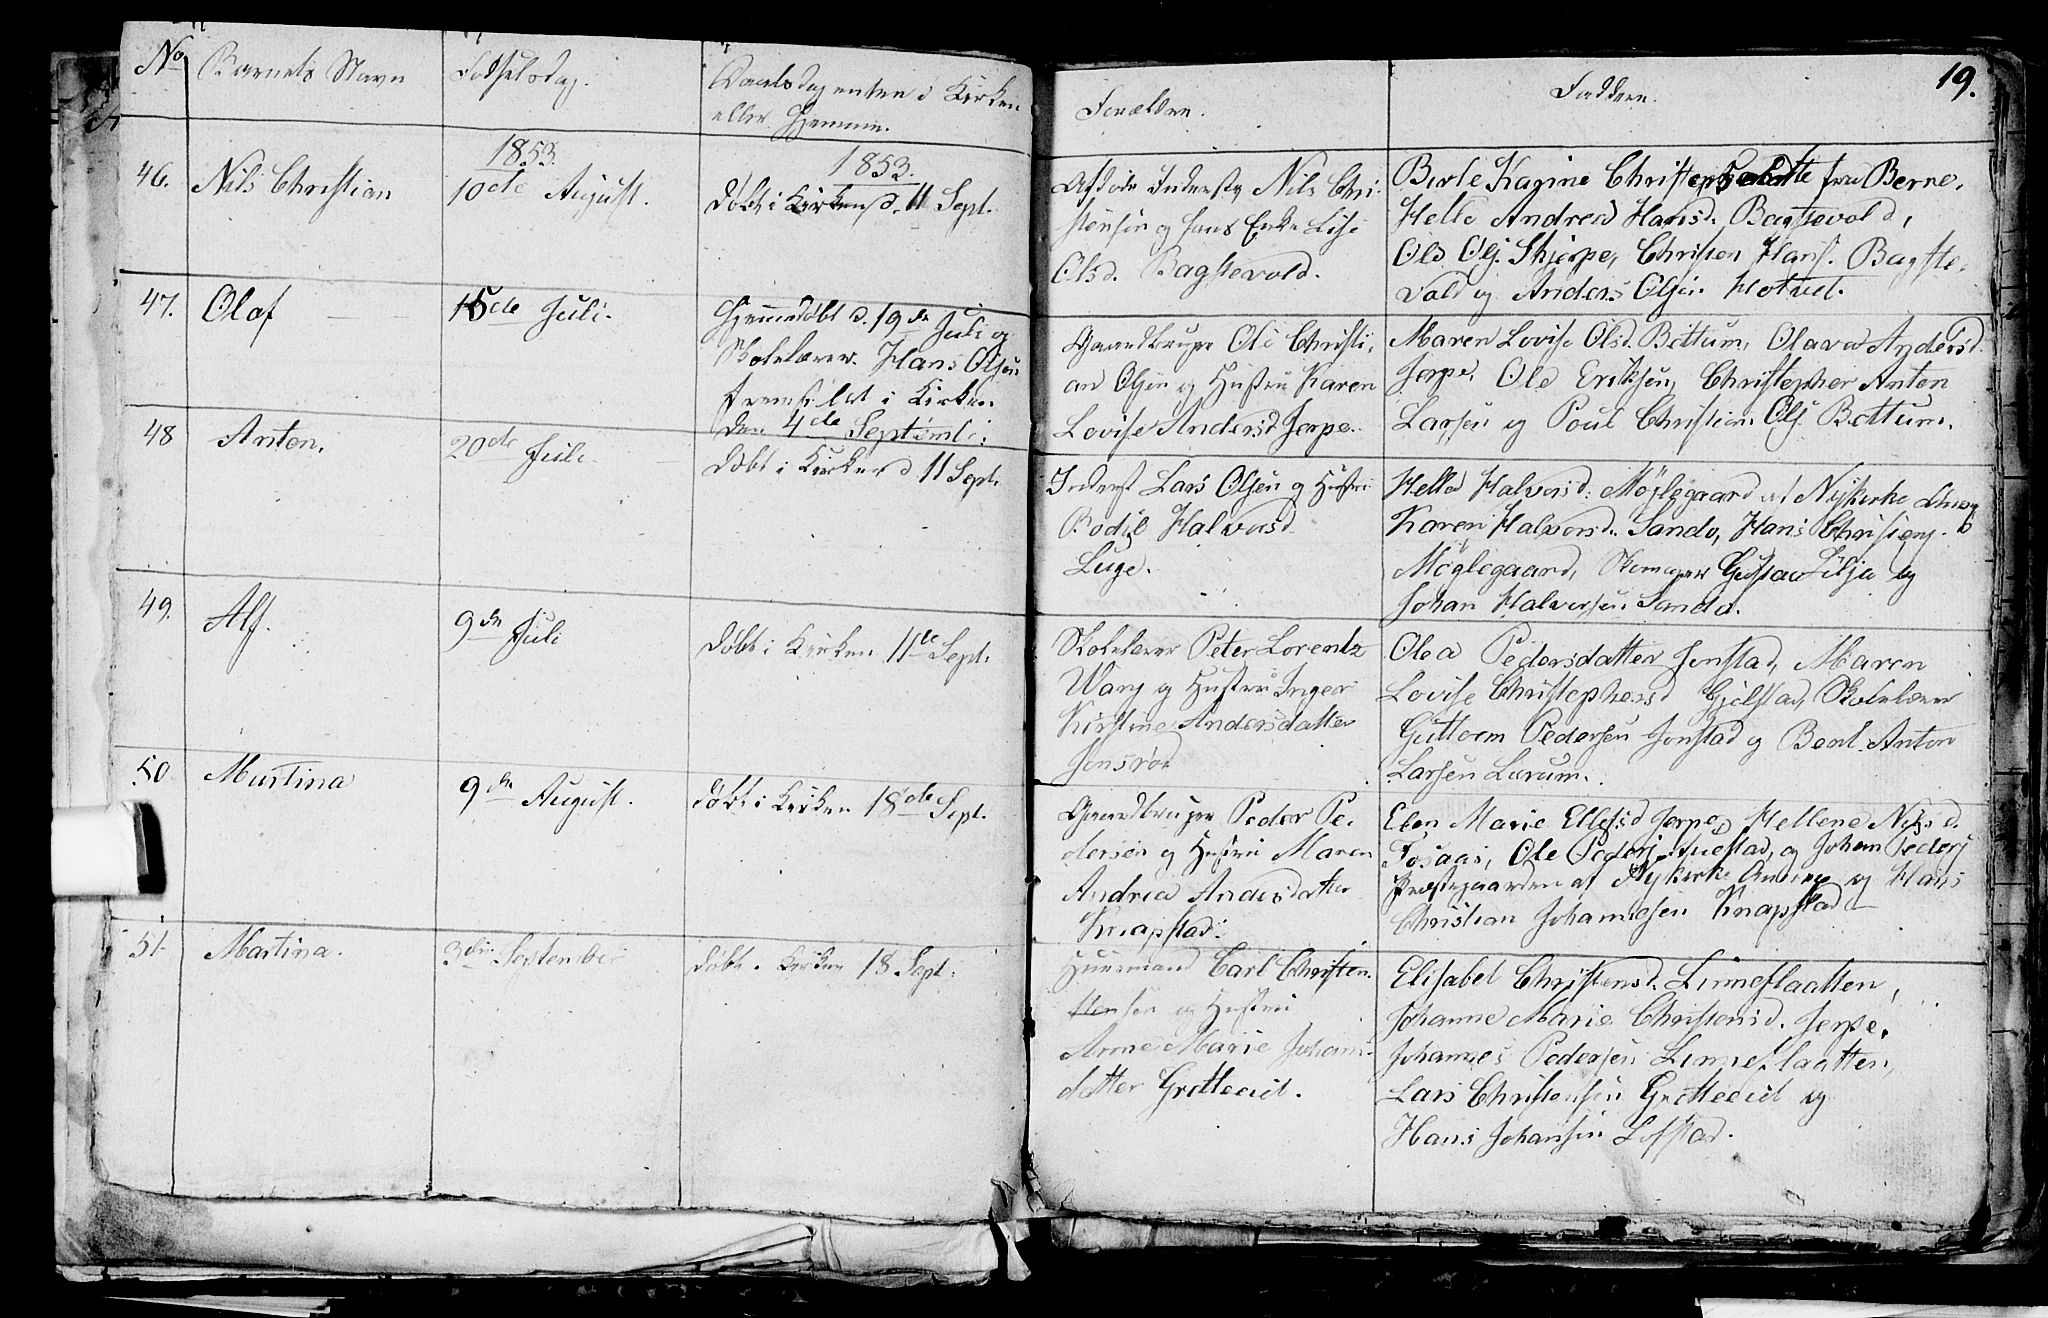 19.
No Barnets Navn Fødselsdag. Daabsdag enten i Kirken
eller Hjemme.
Forældre. Faddere.
1853. 1853.
46. Nils Christian 10de August. Døbt i Kirken d. 11 Sept.
Afdøde Inderst Nils Chri-
stensen og hans Enke Lise
Olsd. Bagstevold.
Berte Kagine fra Berne,
Helle Andrea Hansd. Bagstevold,
Ole Ols. Skjerpe, Christen Hans. Bagste-
vold og Anders Olsen Hotvet.
47. Olaf 15de Juli. Hjemmedøbt d. 19de Juli og
Skolelærer Hans Olsen
fremstilet i Kirken
den 4de Septemb:
Gaardbruger Ole Christi-
an Olsen og Hustru Karen
Lovise Andersd. Jerpe.
Maren Lovise Olsd. Bettum, Olava Andersd.
Jerpe, Ole Eriksen, Christopher Anton
Larsen og Poul Christian Ols. Bettum.
48 Anton. 20de Juli Døbt i Kirken d 11 Sept.
Inderst Lars Olsen og Hustru
Bodil Halvorsd.
Luge.
Hella Halvorsd. Møglegaard af Nykirke
Karen Halvorsd. Sande, Hans
Møglegaard, Gustav Lilja og
Johan Halvorsen Sande.
49. Alf. 9de Juli Døbt i Kirken 11te Sept.
Skolelærer Peter Lorentz
Wang og Hustru Inger
Kirstine Andersdatter
Jonsrød
Olea Pedersdatter Jonstad, Maren
Lovise Christophersd. Gjelstad, Skolelærer
Guttorm Pedersen Jonstad og Bent Anton
Larsen Lerum.
50 Martina 9de August. Døbt i Kirken 18de Sept.
Gaardbruger Peder Pe-
dersen og Hustru Maren
Andrea Andersdatter
Knapstad.
Elen Marie Ellefsd Jerpe, Hellene Nilsd.
Fosaas, Ole Peders og Johan Peders
Præstegaarden af Nykirke og Hans
Christian Johannesen Knapstad
51. Martina. 3die September Døbt i Kirken 18 Sept.
Huusmand Carl Christen
stensen og Hustru
Anne Marie Johans-
datter Grettecid.
Elisabet Christensd. Linneslaatten,
Johanne Marie Christensd. Jerpe.
Johannes Pedersen Linneslaatten,
Lars Christensen Grettecid og
Hans Johansen Lofstad.